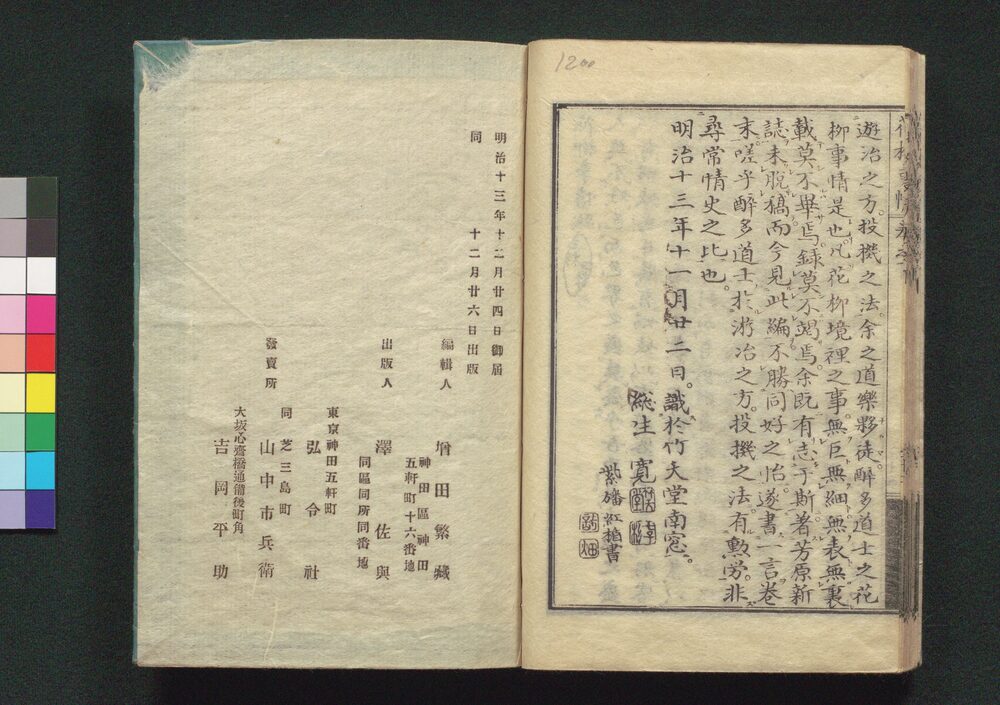 1200
遊冶之方。投機之法。余之道樂夥徒醉多道士之花
柳事情是也。凡花柳境裡之事。無巨無細。無表無裏
載莫不畢焉。録莫不竭焉。余既有志于斯。著芳原新
誌。未脱稿。而今見此編。不勝同好之怡。遂書一言卷
末。嗟乎醉多道士。於游冶之方。投機之法。有勲労。非
尋常情史之比也。
明治十三年十一月廿二日。識於竹天堂南窓。
總生寛
紫 紅 書
明治十三年十二月廿四日御屆
同 十二月廿六日出版
編輯人 増田繁藏
神田區神田
五軒町十六番地
出版人 澤佐與
同區同所同番地
東京神田五軒町
發賣所 弘令社
同芝三島町
山中市兵衛
大坂心齋橋通備後町角
吉岡平助